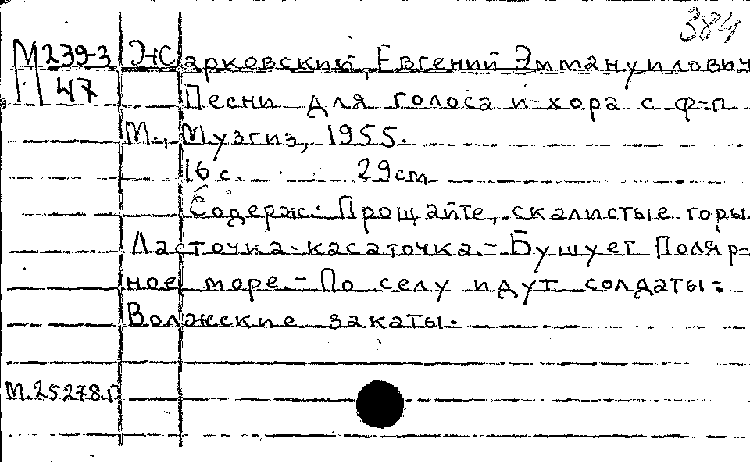 384
М 239-3 Жарковский, Евгений Эммануилович
47 Песни для голоса и хора с ф-п
М., Музгиз, 1955.
16 с. 29 см
Содерж: Прощайте, скалистые горы.
Ласточка-касаточка. - Бушует Поляр-
ное море. - По селу идут солдаты:
Волжские закаты.
М.25278.п